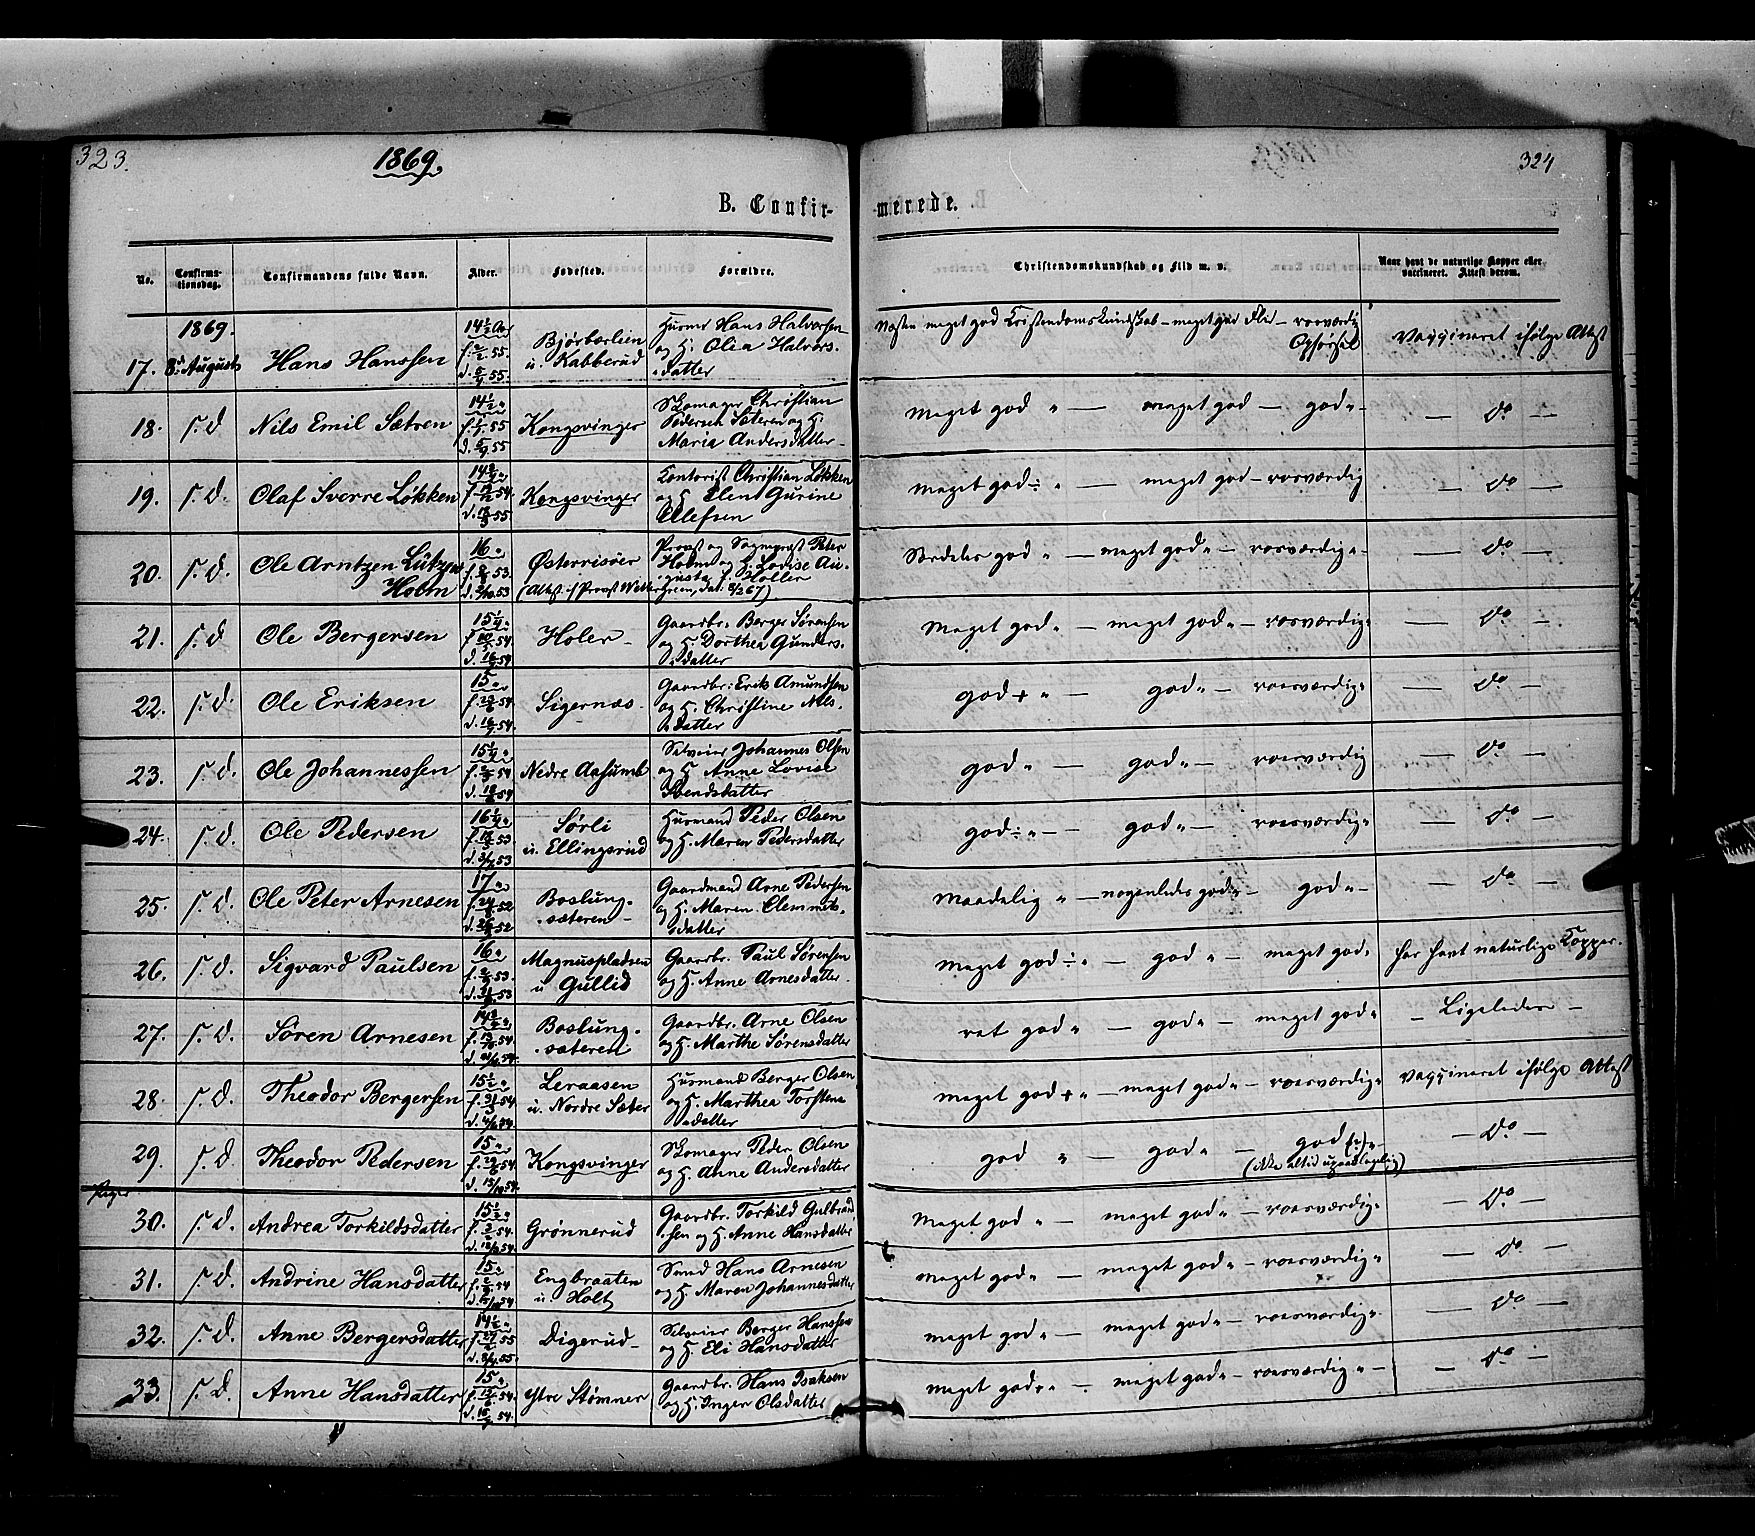 323.
1869.
324
B. Confir-
merede.
No.
Confirma-
tionsdag.
Confirmandens fulde Navn.
Alder.
Fødested.
Forældre.
Christendomskundskab og Flid m. v.
Naar havt de naturlige Kopper eller
vaccineret. Attest derom.
1869.
17. 8. August Hans Hanssen
14½ Aar
Bjørbærlien
u. Kabberud
Husmd Hans Halvorsen
og H. Olia Halvors-
datter
Næsten meget god Kristendomskundskab - meget god Flid - rosværdig
Opførsel
Vaccineret ifølge Attest
18. s. d. Nils Emil Sætren
14½ "
Kongsvinger
Skomager Christian
Pedersen Sæteren og H.
Maria Andersdatter
Meget god " — meget god — god " — Do —
19. s. d. Olaf Sverre Løkken
14¾ "
Kongsvinger
Kontorist Christian Løkken
og H. Elen Gurine
Ellefsen
Meget god ÷ " — meget god - rosværdig — Do —
20. s. d. Ole Arntzen Lützow
Holm
16 "
Østerrisöer
Provst og Sognepræst Peter
Holm og H. Lovise Au-
gusta f. Møller
Særdeles god " — meget god " — rosværdig " — Do —
21. s. d. Ole Bergersen
15¼ "
Holer -
Gaardbr. Berger Sørensen
og H. Dorthea Gunders-
datter
Meget god " — meget god " — rosværdig " — Do —
22. s. d. Ole Eriksen
15 "
Sigernæs
Gaardbr. Erik Amundsen
og H. Christine Nils-
datter
god + " — god " — rosværdig " — Do —
23. s. d. Ole Johannessen
15¼ "
Nedre Aasumb
Selveier Johannes Olsen
og H. Anne Lovise
Svendsdatter
god " — god " — rosværdig — Do —
24. s. d. Ole Pedersen
16¼ "
Sørli
u. Ellingsrud
Husmand Peder Olsen
og H. Maren Pedersdatter
god ÷ " — god " — rosværdig " — Do —
25. s. d. Ole Peter Arnesen
17 "
Baslung-
sæteren -
Gaardmand Arne Pedersen
og H. Maren Clemmets-
datter
Maadelig " — nogenledes god " — god " — Do —
26. s. d. Sigvard Paulsen
16 "
Magnuspladsen
u Gullid
Gaardbr. Paul Sørensen
og H. Anne Arnesdatter
Meget god ÷ " — god " — meget god " har havt naturlige Kopper.
27. s. d. Søren Arnesen
14¾ "
Baslung-
sæteren
Gaardbr. Arne Olsen
og H. Marthe Sørensdatter
ret god " — god " — meget god " — Ligeledes —
28. s. d. Theodor Bergersen
15½ "
Leraasen
u. Nordre Sæter
Husmand Berger Olsen
og H. Marthea Torstens
datter
Meget god + " — meget god " — rosværdig " Vaccineret ifølge Attest
29. s. d. Theodor Pedersen
15 "
Kongsvinger
Skomager Peder Olsen
og H. Anne Andersdatter
god " — god " — god
(ikke altid upaaklagelig)
— Do —
Piger
30. s. d. Andrea Torkildsdatter
15½ "
Grønnerud
Gaardbr. Torkild Gulbrand
sen og H. Anne Hansdatter
Meget god " — meget god " — rosværdig " — Do —
31. s. d. Andrine Hansdatter
15 "
Engbraaten
u. Holt
Smed Hans Arnesen
og H. Maren Johannesdatter
Meget god " — meget god " — rosværdig " — Do —
32. s. d. Anne Bergersdatter
14½ "
Digerud -
Selveier Berger Hanssen
og H. Eli Hansdatter
meget god " — meget god " — rosværdig " — Do —
33. s. d. Anne Hansdatter
15 "
Ytre Stømner
Gaardbr. Hans Isaksen
og H. Inger Olsdatter
meget god " — meget god " — rosværdig " — Do —